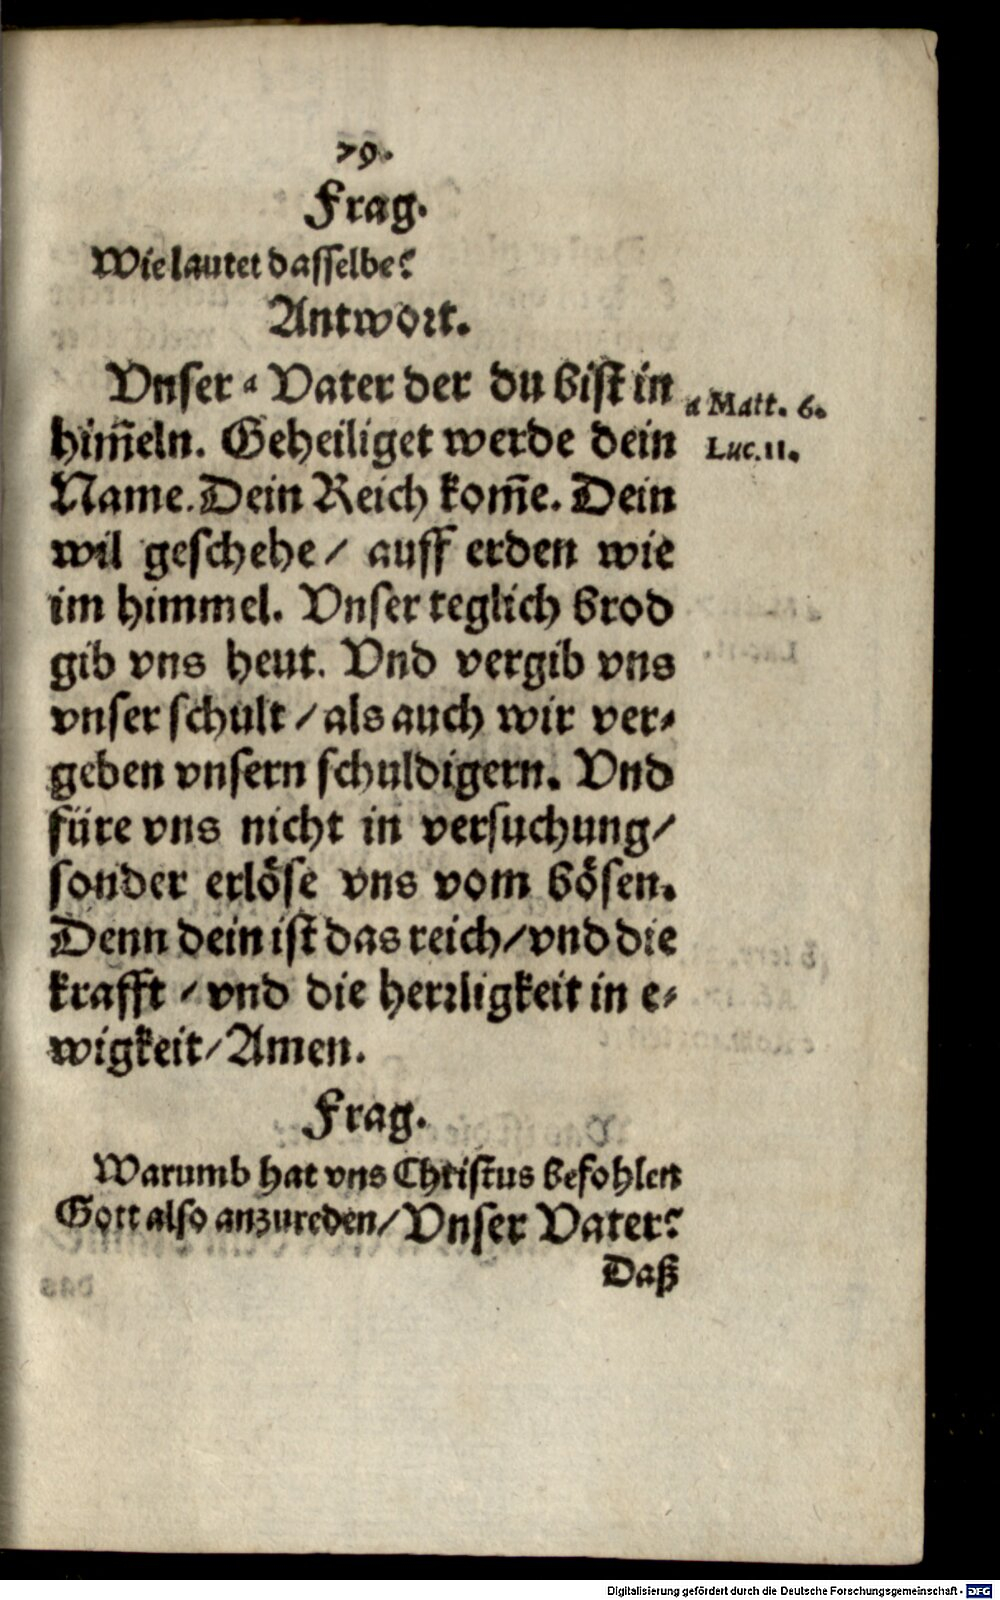 79.
Frag.
Wie lautet dasselbe?
Antwort.
Vnser a Vater der du bist in
him̃eln. Geheiliget werde dein
Name. Dein Reich kom̃e. Dein
wil geschehe / auff erden wie
im himmel. Vnser teglich brod
gib vns heut. Vnd vergib vns
vnser schult / als auch wir ver-
geben vnsern schuldigern. Vnd
füre vns nicht in versuchung /
sonder erlöse vns vom bösen.
Denn dein ist das reich / vnd die
krafft / vnd die herrligkeit in e-
wigkeit / Amen.
a Matt. 6.
Luc. 11.
Frag.
Warumb hat vns Christus befohlen
Gott also anzureden / Vnser Vater?
Daß
Digitalisierung gefördert durch die Deutsche Forschungsgemeinschaft - DFG